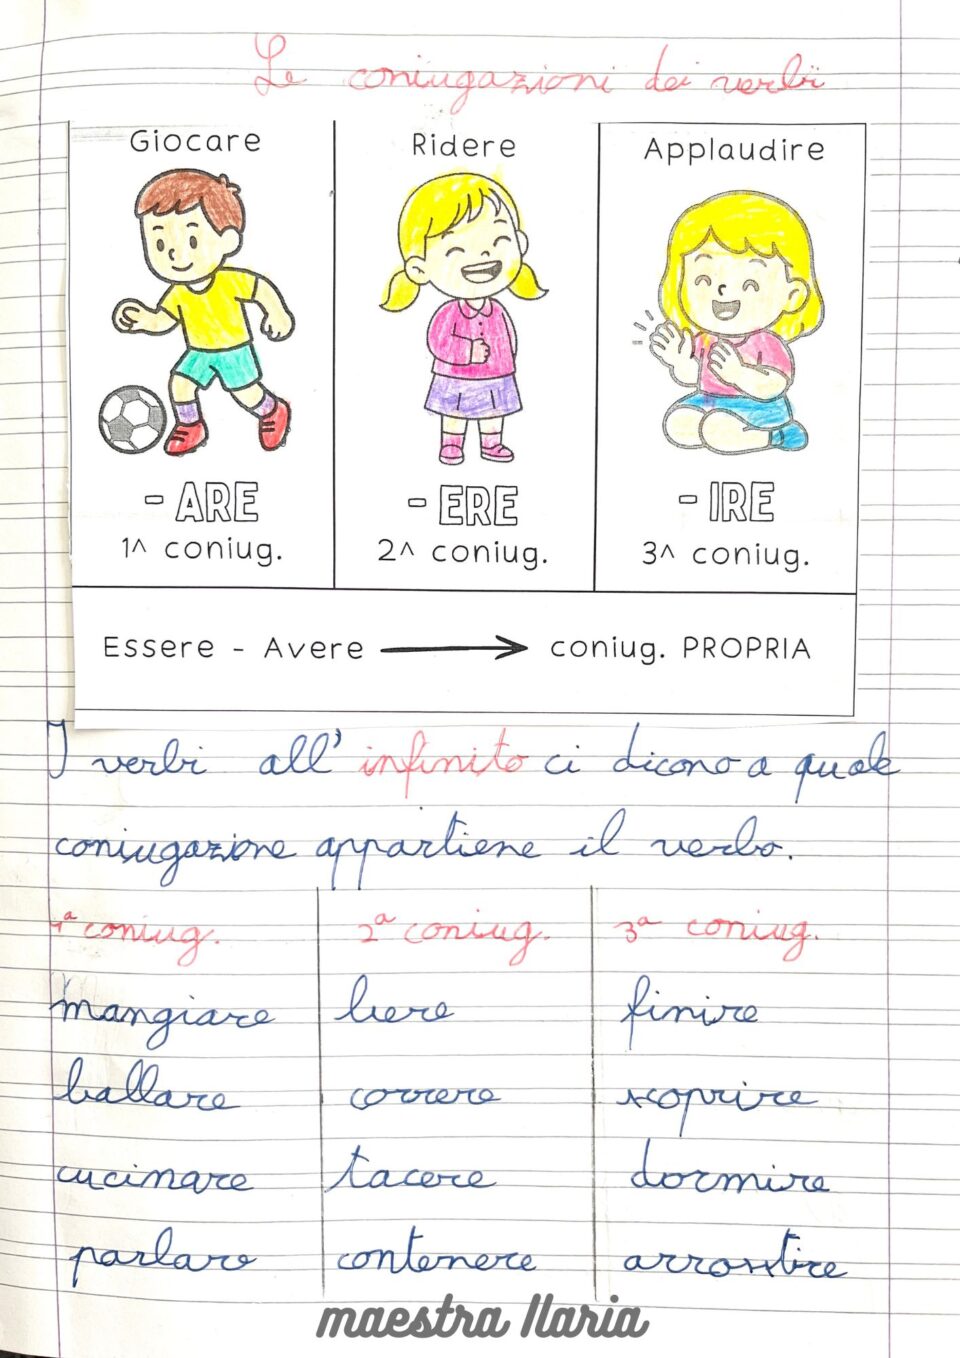 Le coniugazioni dei verbi
Giocare Ridere Applaudire
- ARE - ERE - IRE
1^ coniug. 2^ coniug. 3^ coniug.
Essere - Avere → coniug. PROPRIA
I verbi all'infinito ci dicono a quale
coniugazione appartiene il verbo.
1ª coniug. 2ª coniug. 3ª coniug.
mangiare bere finire
ballare correre scoprire
cucinare tacere dormire
parlare contenere arrostire
maestra Ilaria